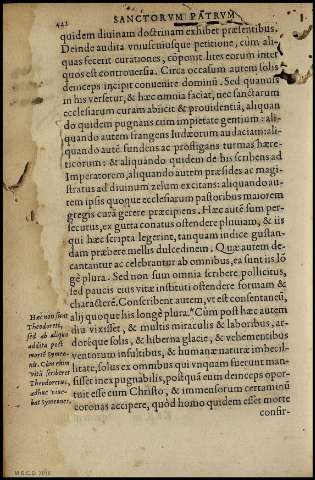 442
SANCTORVM PATRVM
quidem diuinam doctrinam exhibet præsentibus.
Deinde audita vnuscuiusque petitione, cum ali-
quas fecerit curationes, cōponit lites eorum inter
quos est controuersia. Circa occasum autem solis
deinceps incipit conuenire dominū. Sed quanuis
in his versetur, & hæc omnia faciat, nec sanctarum
ecclesiarum curam abiicit & prouidentiā, aliquan
do quidem pugnans cum impietate gentium: ali-
quando autem frangens Iudæorum audaciam: ali-
quando autē fundens ac profligans turmas hære-
ticorum: & aliquando quidem de his scribens ad
Imperatorem, aliquando autem præsides ac magi-
stratus ad diuinum zelum excitans: aliquando au-
tem ipsis quoque ecclesiarum pastoribus maiorem
gregis curā gerere præcipiens. Hæc autē sum per-
secutus, ex gutta conatus ostendere pluuiam, & iis
qui hæc scripta legerint, tanquam indice gustan-
dam præbere mellis dulcedinem. Quæ autem de-
cantantur ac celebrantur ab omnibus, ea sunt iis lō
gè plura. Sed non sum omnia scribere pollicitus,
sed paucis eius vitæ instituti ostendere formam &
characterē. Conscribent autem, vt est consentaneū,
alij quoque his longè plura. Cùm post hæc autem
diu vixisset, & multis miraculis & laboribus, ar-
doréque solis, & hiberna glacie, & vehementibus
ventorum insultibus, & humanæ naturæ imbecil-
litate, solus ex omnibus qui vnquam fuerunt man-
sisset inexpugnabilis, postquā eum deinceps opor-
tuit esse cum Christo, & immensorum certaminū
coronas accipere, quòd homo quidem esset morte
confir-
Hæc non sunt
Theodoreti,
sed ab aliquo
addita post
mortē Symeo-
nis. Cùm enim
vitā scriberet
Theodoretus,
adhuc viue-
bat Symeones.